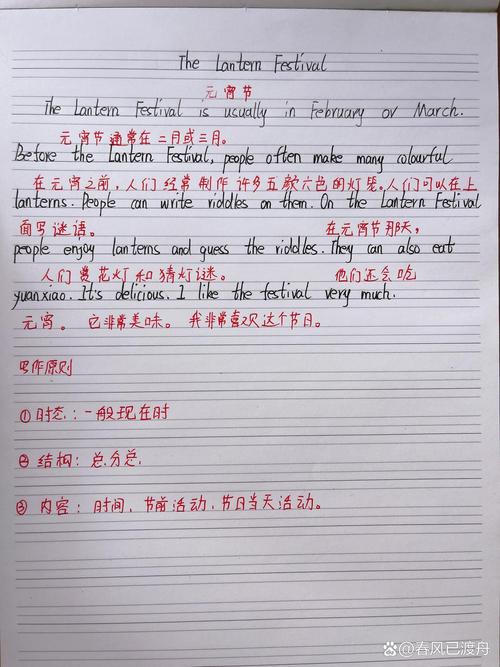 The Lantern Festival
元宵节
The Lantern Festival is usually in February or March.
元宵节通常在二月或三月。
Before the Lantern Festival, people often make many colourful
在元宵之前,人们经常制作许多五颜六色的灯笼。人们可以在上
lanterns. People can write riddles on them. On the Lantern Festival
面写谜语。 在元宵节那天,
people enjoy lanterns and guess the riddles. They can also eat
人们赏花灯和猜灯谜。 他们还会吃
yuanxiao. It's delicious. I like the festival very much.
元宵。 它非常美味。 我非常喜欢这个节日。
写作原则
①时态:一般现在时
②结构:总分总.
③内容:时间、节前活动、节日当天活动。
春风已渡舟